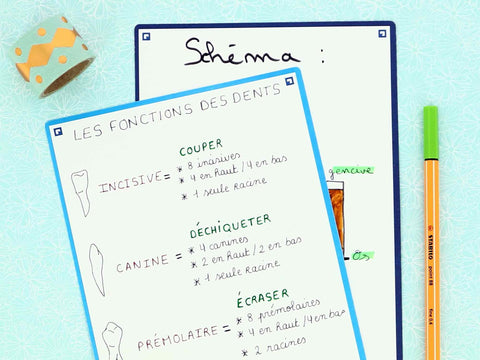 Schéma :
LES FONCTIONS DES DENTS
COUPER
INCISIVE =
* 8 incisives
* 4 en haut / 4 en bas
* 1 seule racine
DÉCHIQUETER
CANINE =
* 4 canines
* 2 en haut / 2 en bas
* 1 seule racine
ÉCRASER
PRÉMOLAIRE =
* 8 prémolaires
* 4 en haut / 4 en bas
* 2 racines
gencive
Os
STABILO point 88 fine 0,4